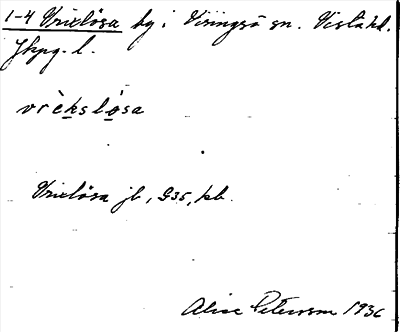 1-4 Vrixlösa by i Visingsö sn. Vista hd.
Jkpg. l.
vrèkslòsa
Vrixlösa jb, G35, kb.
Alice Petersson 1936